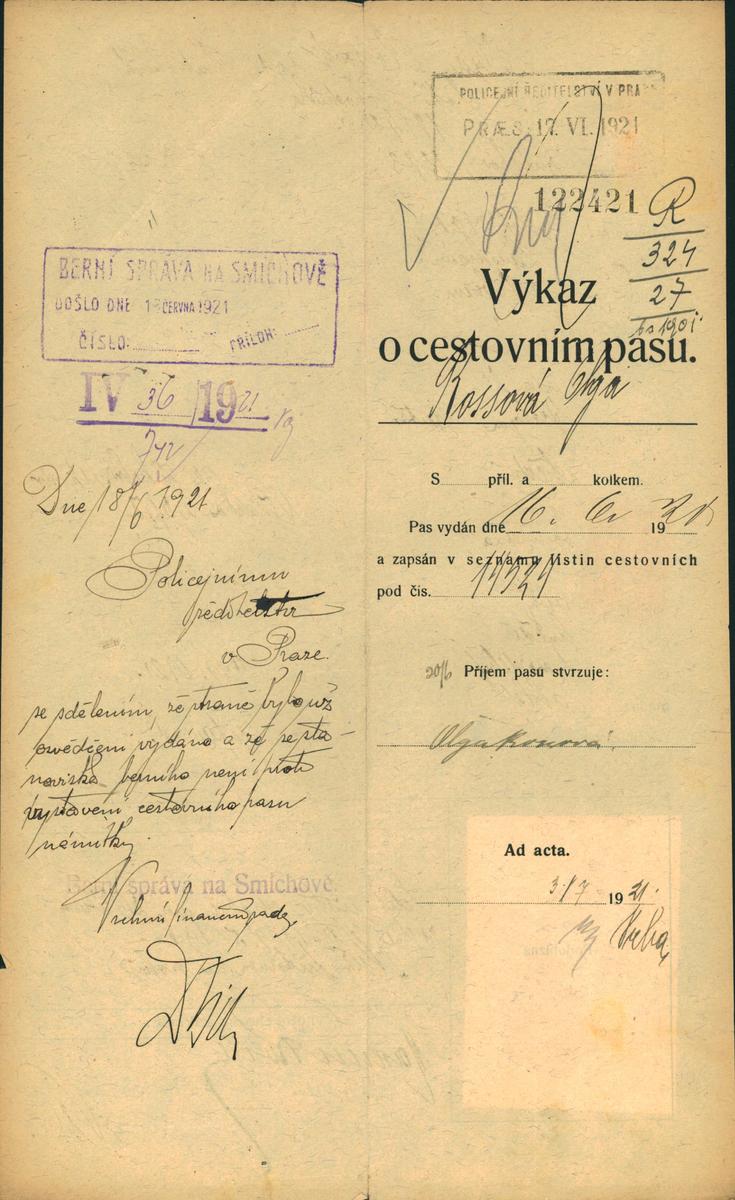 BERNÍ SPRÁVA NA SMÍCHOVĚ
DOŠLO DNE 1 ČERVNA 1921
ČÍSLO: PŘÍLOH:
IV 36/1921
Dne 18/6 1921
Policejnímu
ředitelství
v Praze.
se sdělením, že straně bylo už
osvědčení vydáno a že se sta-
noviska berního není proti
vystavení cestovního pasu
námitky.
Berní správa na Smíchově.
Vrchní finanční rada
POLICEJNÍ ŘEDITELSTVÍ V PRA
PRÆS. 17. VI. 1921
122421
R
324
27
Výkaz
o cestovním pasu.
Kossová Olga
S příl. a kolkem.
Pas vydán dne 16. 1920
a zapsán v seznamu listin cestovních
pod čís. 14321
20/6 Příjem pasu stvrzuje:
Ad acta.
3/7 1921.